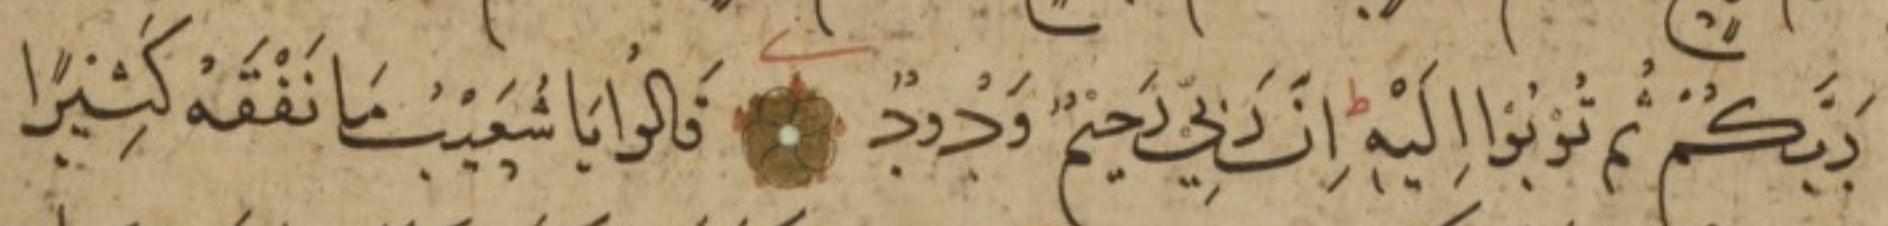 رَبَّكُمْ ثُمَّ تُوْبُوْا اِلَيْهِ ط اِنَّ رَبِّيْ رَحِيْمٌ وَدُوْدٌ ى قَالُوا يَا شُعَيْبُ مَا نَفْقَهُ كَثِيْرًا